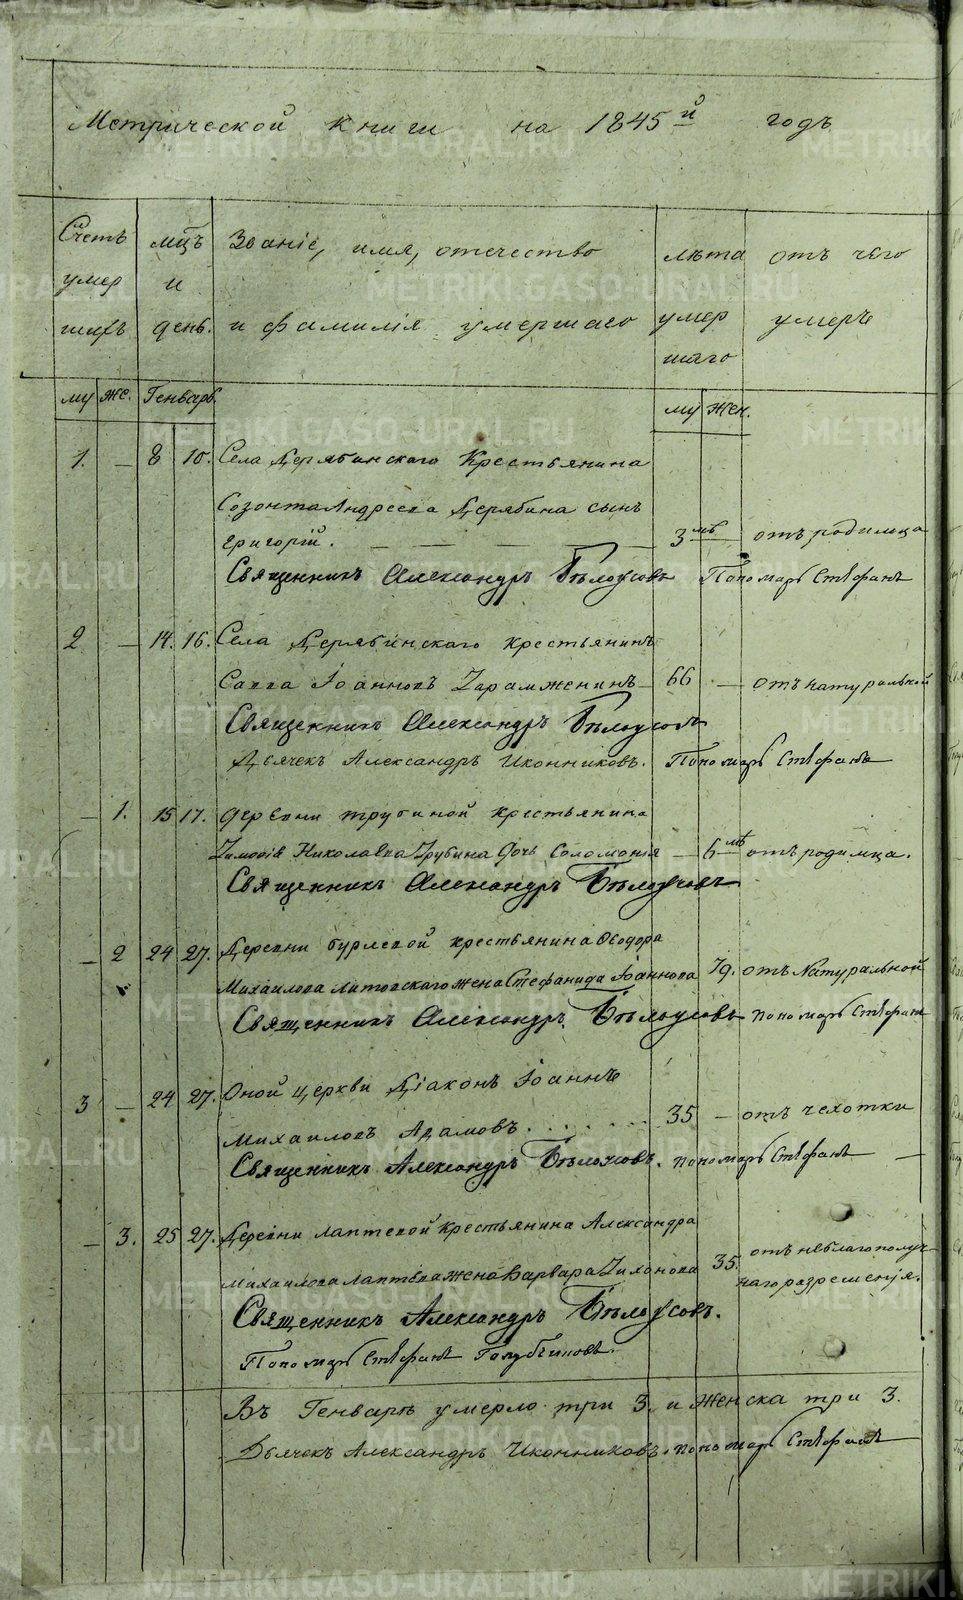 Метрической книги на 1845й годъ
Счетъ умершихъ
мцъ и день.
Званіе, имя, отечество и фамилія умершаго
лѣта умершаго
отъ чего умерь
му же. Генварь. му жен.
1. — 8 10. Села Дерябинскаго Крестьянина
Созонта Андреева Дерябина сынъ
Григорій. — — — 3 мѣ — отъ родимца
Священникъ Александръ Бѣлоусовъ Пономарь Стефанъ
2 — 14. 16. Села Дерябинскаго крестьянинъ
Савва Іоанновъ — 66 — отъ натуральной
Священникъ Александръ Бѣлоусовъ
Дьячекъ Александръ Иконниковъ. Пономарь Стефанъ
— 1. 15 17. деревни трубиной крестьянина
Николаева Трубина дочь Соломонія — 6 мѣ отъ родимца.
Священникъ Александръ Бѣлоусовъ
— 2 24 27. Деревни бурлевой крестьянина Ѳеодора
Михайлова Литовскаго жена Стефанида Іоаннова 79. отъ Натуральной
Священникъ Александръ Бѣлоусовъ пономарь Стефанъ
3 — 24 27. Оной церкви Діаконъ Іоаннъ
Михаиловъ Адамовъ. . . . . . . 35 — отъ чехотки
Священникъ Александръ Бѣлоусовъ. пономарь Стефанъ —
— 3. 25 27. Деревни лаптевой крестьянина Александра
Михаилова лаптева жена Варвара Тихонова 35. отъ неблагополуч-
наго разрешенія.
Священникъ Александръ Бѣлоусовъ.
Пономарь Стефанъ Голубчиковъ.
Въ Генварѣ умерло три 3. и Женска три 3.
Дьячекъ Александръ Иконниковъ. пономарь Стефанъ
METRIKI.GASO-URAL.RU